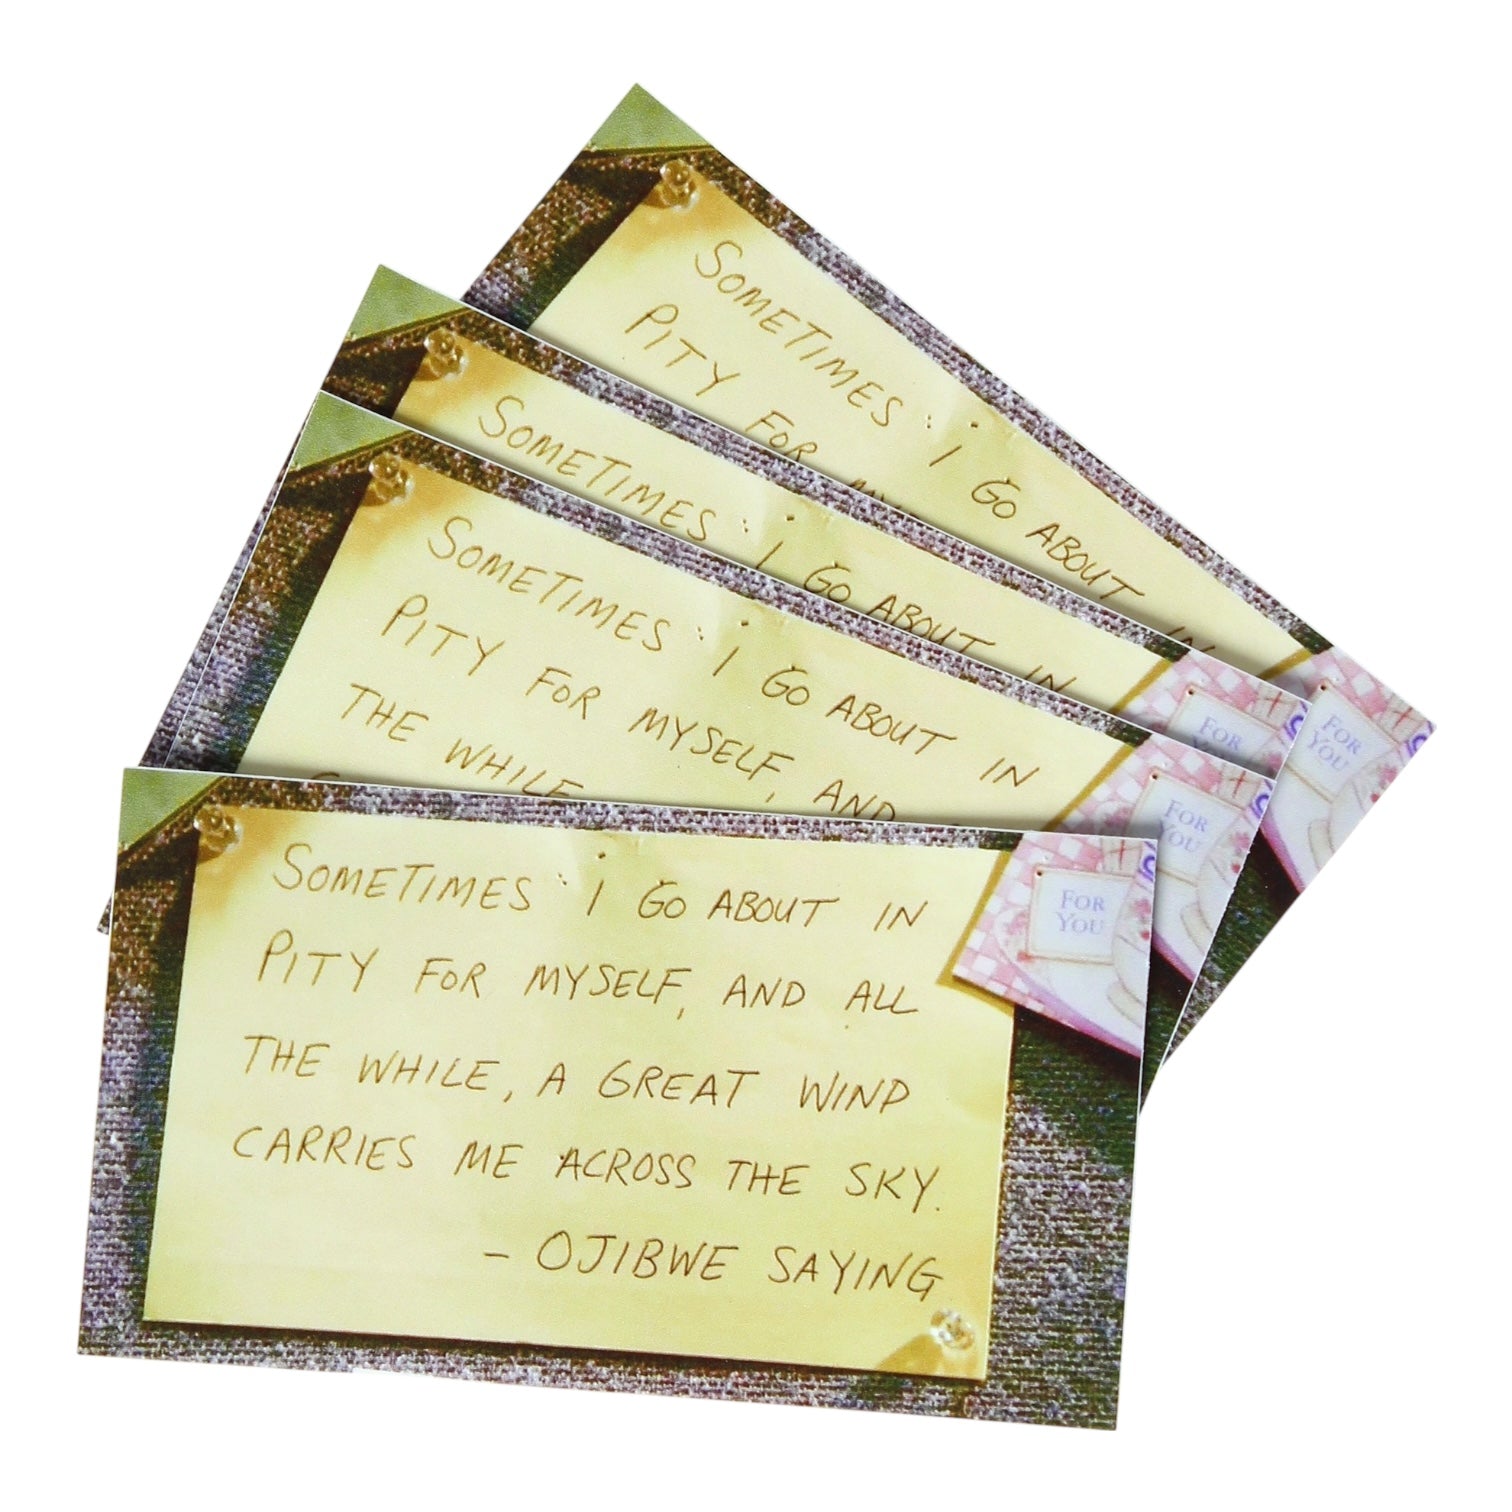 SOMETIMES I GO ABOUT IN
PITY FOR MY
SOMETIMES I GO ABOUT IN
SOMETIMES I GO ABOUT IN
PITY FOR MYSELF, AND
THE WHILE
SOMETIMES I GO ABOUT IN
PITY FOR MYSELF, AND ALL
THE WHILE, A GREAT WIND
CARRIES ME ACROSS THE SKY.
– OJIBWE SAYING
FOR
YOU
FOR
FOR
YOU
FOR
YOU